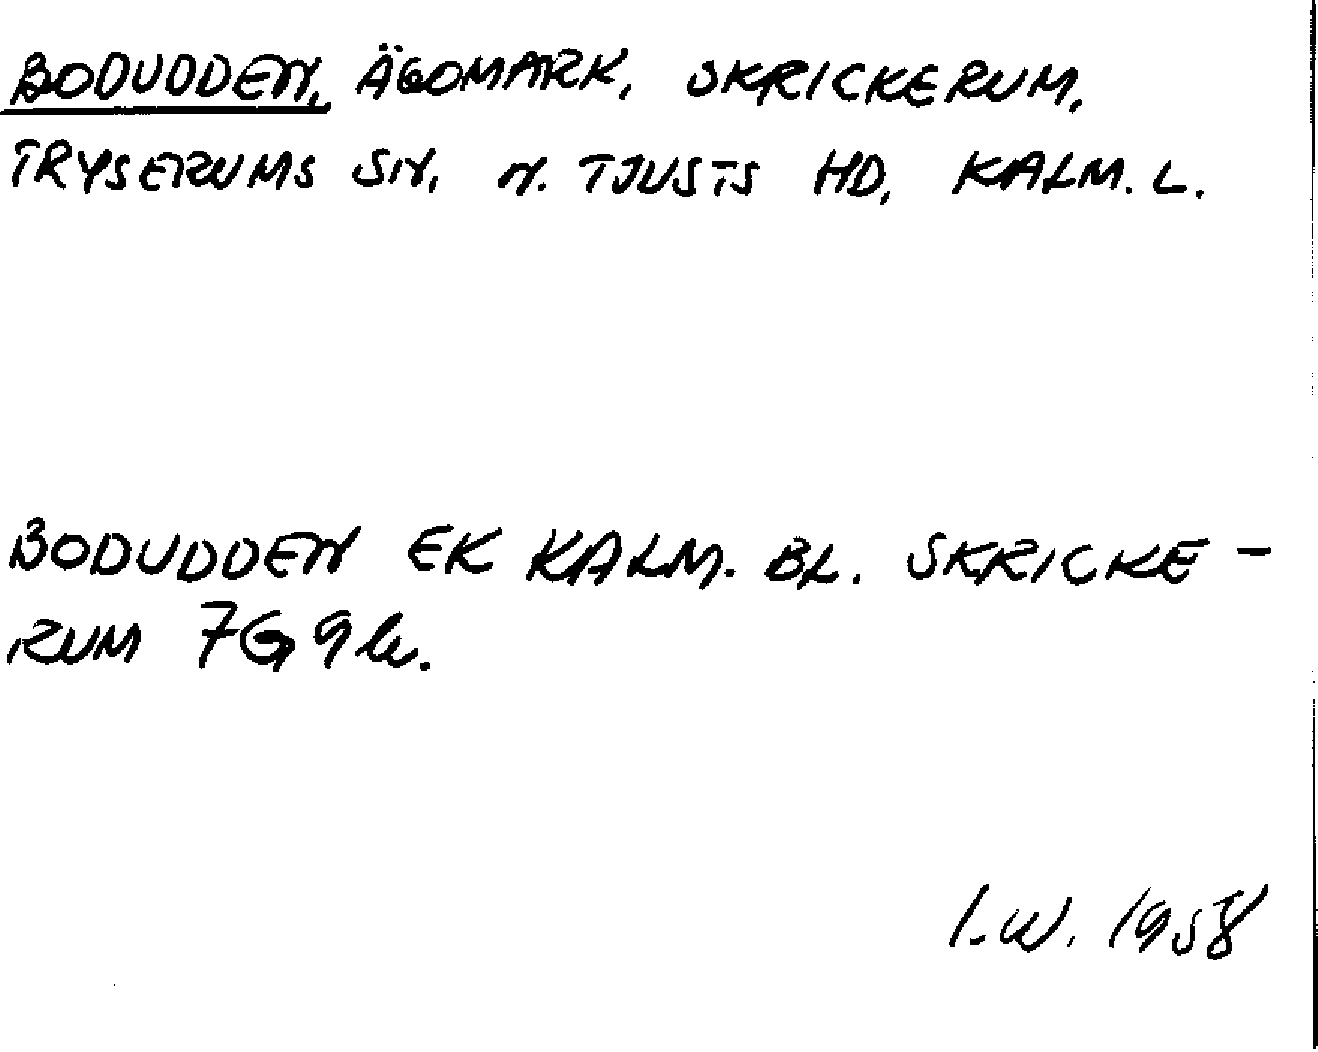 BODUDDEN, ÄGOMARK, SKRICKERUM,
TRYSERUMS SN, N. TJUSTS HD, KALM. L.
BODUDDEN EK KALM. BL. SKRICKE-
RUM 7G9h.
I.W. 1958